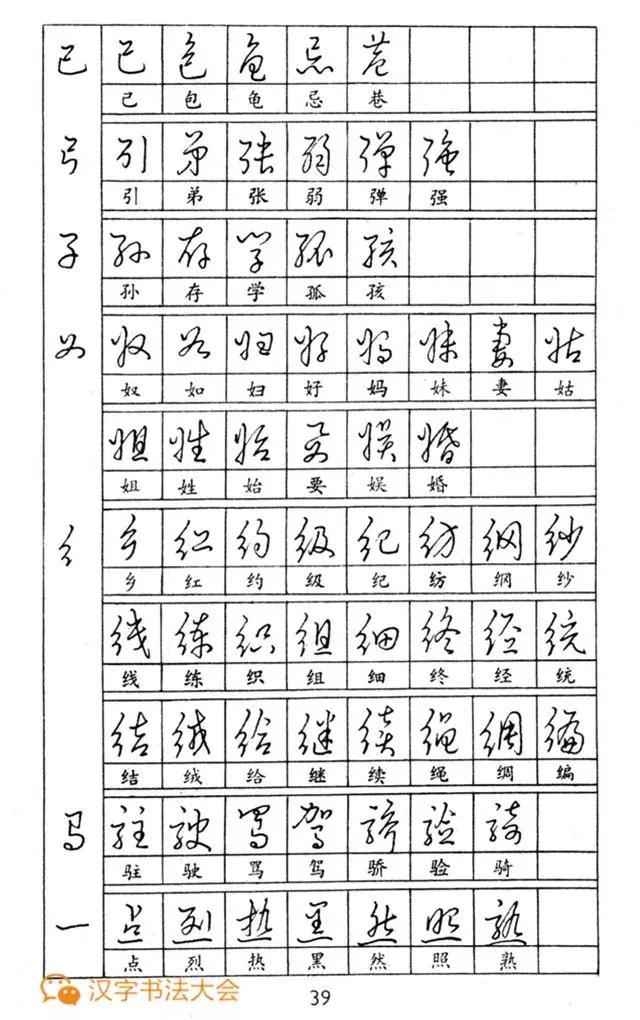 己 己 包 龟 忌 巷
己 包 龟 忌 巷
弓 引 弟 张 弱 弹 强
引 弟 张 弱 弹 强
子 孙 存 学 孤 孩
孙 存 学 孤 孩
女 奴 如 妇 好 妈 妹 妻 姑
奴 如 妇 好 妈 妹 妻 姑
姐 姓 始 要 娱 婚
姐 姓 始 要 娱 婚
纟 乡 红 约 级 纪 纺 纲 纱
乡 红 约 级 纪 纺 纲 纱
线 练 织 组 细 终 经 统
线 练 织 组 细 终 经 统
结 绒 给 继 续 绳 绸 编
结 绒 给 继 续 绳 绸 编
马 驻 驶 骂 驾 骄 验 骑
驻 驶 骂 驾 骄 验 骑
一 点 烈 热 黑 然 照 熟
点 烈 热 黑 然 照 熟
汉字书法大会
39